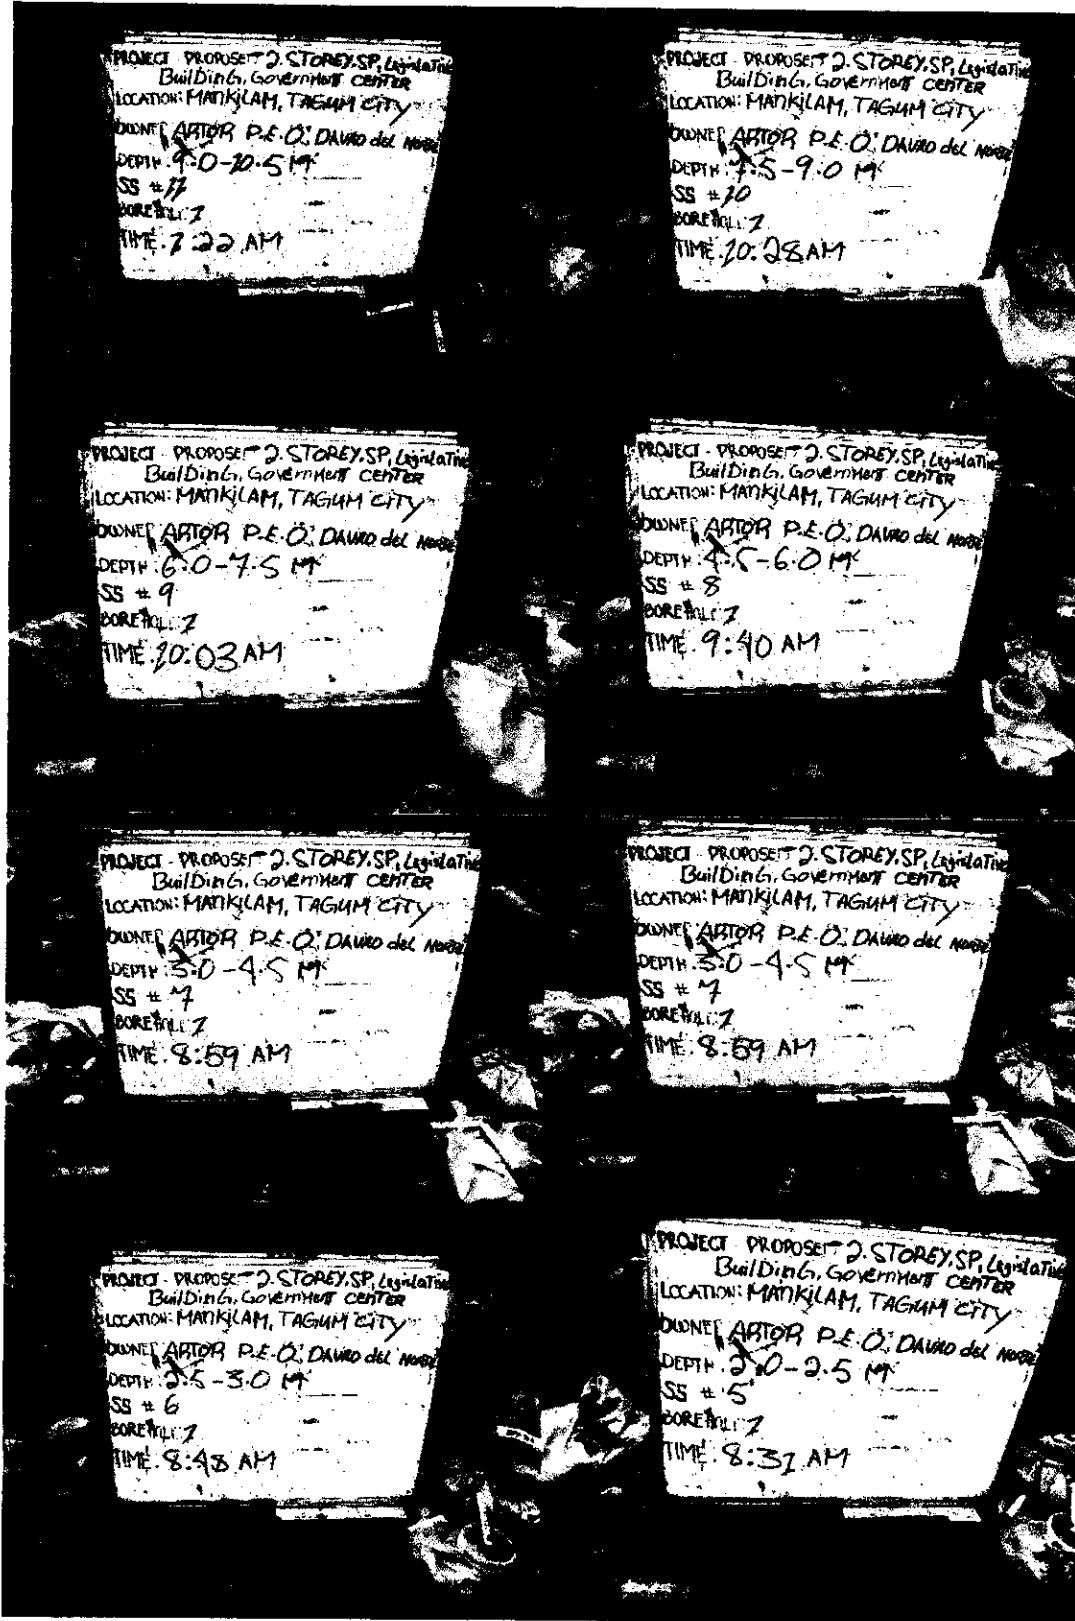 PROJECT - PROPOSET 2. STOREY, SP, LegislaTive
BuilDinG, GoverNmenT CENTER
LOCATION: MANKiLAM, TAGUM CiTY
OWNER ARTOR P.E.O. DAVAO del NORTE
DEPTH . 9.0-10.5 M
SS # 11
BOREHOLE: 1
TIME . 1:22 AM
PROJECT - PROPOSET 2. STOREY, SP, LegislaTive
BuilDinG, GoverNmenT CENTER
LOCATION: MANKiLAM, TAGUM CiTY
OWNER ARTOR P.E.O. DAVAO del NORTE
DEPTH . 7.5-9.0 M
SS # 10
BOREHOLE: 1
TIME . 10:28 AM
PROJECT - PROPOSET 2. STOREY, SP, LegislaTive
BuilDinG, GoverNmenT CENTER
LOCATION: MANKiLAM, TAGUM CiTY
OWNER ARTOR P.E.O. DAVAO del NORTE
DEPTH . 6.0-7.5 M
SS # 9
BOREHOLE: 1
TIME . 10:03 AM
PROJECT - PROPOSET 2. STOREY, SP, LegislaTive
BuilDinG, GoverNmenT CENTER
LOCATION: MANKiLAM, TAGUM CiTY
OWNER ARTOR P.E.O. DAVAO del NORTE
DEPTH . 4.5-6.0 M
SS # 8
BOREHOLE: 1
TIME . 9:40 AM
PROJECT - PROPOSET 2. STOREY, SP, LegislaTive
BuilDinG, GoverNmenT CENTER
LOCATION: MANKiLAM, TAGUM CiTY
OWNER ARTOR P.E.O. DAVAO del NORTE
DEPTH . 3.0-4.5 M
SS # 7
BOREHOLE: 1
TIME . 8:59 AM
PROJECT - PROPOSET 2. STOREY, SP, LegislaTive
BuilDinG, GoverNmenT CENTER
LOCATION: MANKiLAM, TAGUM CiTY
OWNER ARTOR P.E.O. DAVAO del NORTE
DEPTH . 3.0-4.5 M
SS # 7
BOREHOLE: 1
TIME . 8:59 AM
PROJECT - PROPOSET 2. STOREY, SP, LegislaTive
BuilDinG, GoverNmenT CENTER
LOCATION: MANKiLAM, TAGUM CiTY
OWNER ARTOR P.E.O. DAVAO del NORTE
DEPTH . 2.5-3.0 M
SS # 6
BOREHOLE: 1
TIME . 8:48 AM
PROJECT - PROPOSET 2. STOREY, SP, LegislaTive
BuilDinG, GoverNmenT CENTER
LOCATION: MANKiLAM, TAGUM CiTY
OWNER ARTOR P.E.O. DAVAO del NORTE
DEPTH . 2.0-2.5 M
SS # 5
BOREHOLE: 1
TIME . 8:31 AM